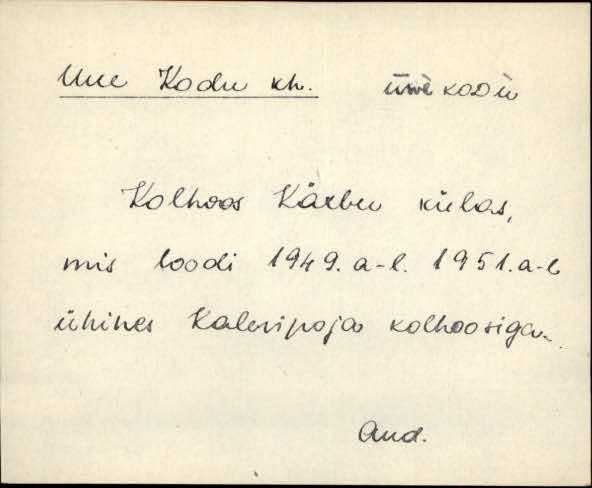 Uue Kodu kh.
Kolhoos Kärbu külas,
mis loodi 1949. a-l. 1951. a-l
ühines Kalevipoja kolhoosiga.
And.